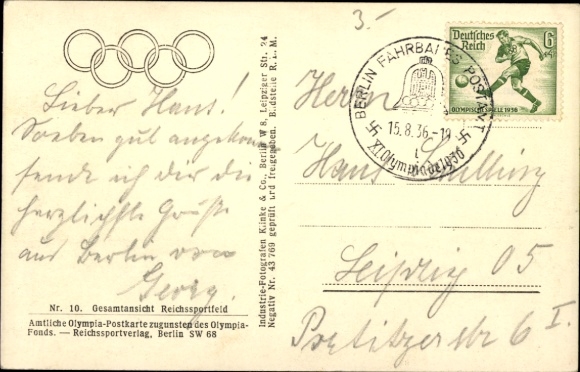 3.-
Lieber Hans!
Soeben gut angekom
sende ich dir die
herzlichste Grüße
aus Berlin von
Georg.
Nr. 10. Gesamtansicht Reichssportfeld
Amtliche Olympia-Postkarte zugunsten des Olympia-
Fonds. — Reichssportverlag, Berlin SW 68
Industrie-Fotografen Klinke & Co., Berlin W 8, Leipziger Str. 24
Negativ Nr. 43 769 geprüft und freigegeben. Bildstelle R. L. M.
Deutsches
Reich
6
OLYMPISCHE SPIELE 1936
BERLIN FAHRBARES POSTAMT
15.8.36.-19
XI. Olympiade 1936
Herrn
Hans
Leipzig O5
6 I.